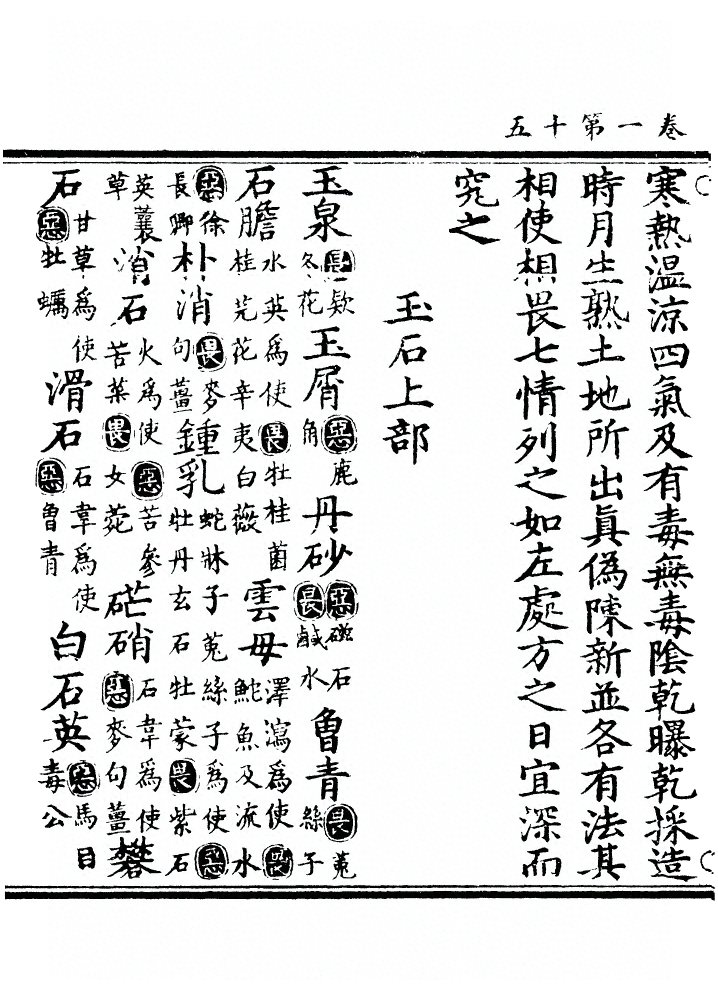 卷一第十五
寒熱溫涼四氣及有毒無毒陰乾曝乾採造
時月生熟土地所出眞偽陳新並各有法其
相使相畏七情列之如左處方之日宜深而
究之
玉石上部
玉泉畏欵冬花玉屑惡鹿角丹砂惡磁石畏鹹水曾青畏菟絲子
石膽水英爲使畏牡桂菌桂芫花辛夷白薇雲母澤瀉爲使畏鮀魚及流水
惡徐長卿朴消畏麥句薑鍾乳蛇牀子菟絲子爲使惡牡丹玄石牡蒙畏紫石
英蘘草消石火爲使惡苦參苦菜畏女菀硭硝石韋爲使惡麥句薑礬
石甘草爲使惡牡蠣滑石石韋爲使惡曾青白石英惡馬目毒公